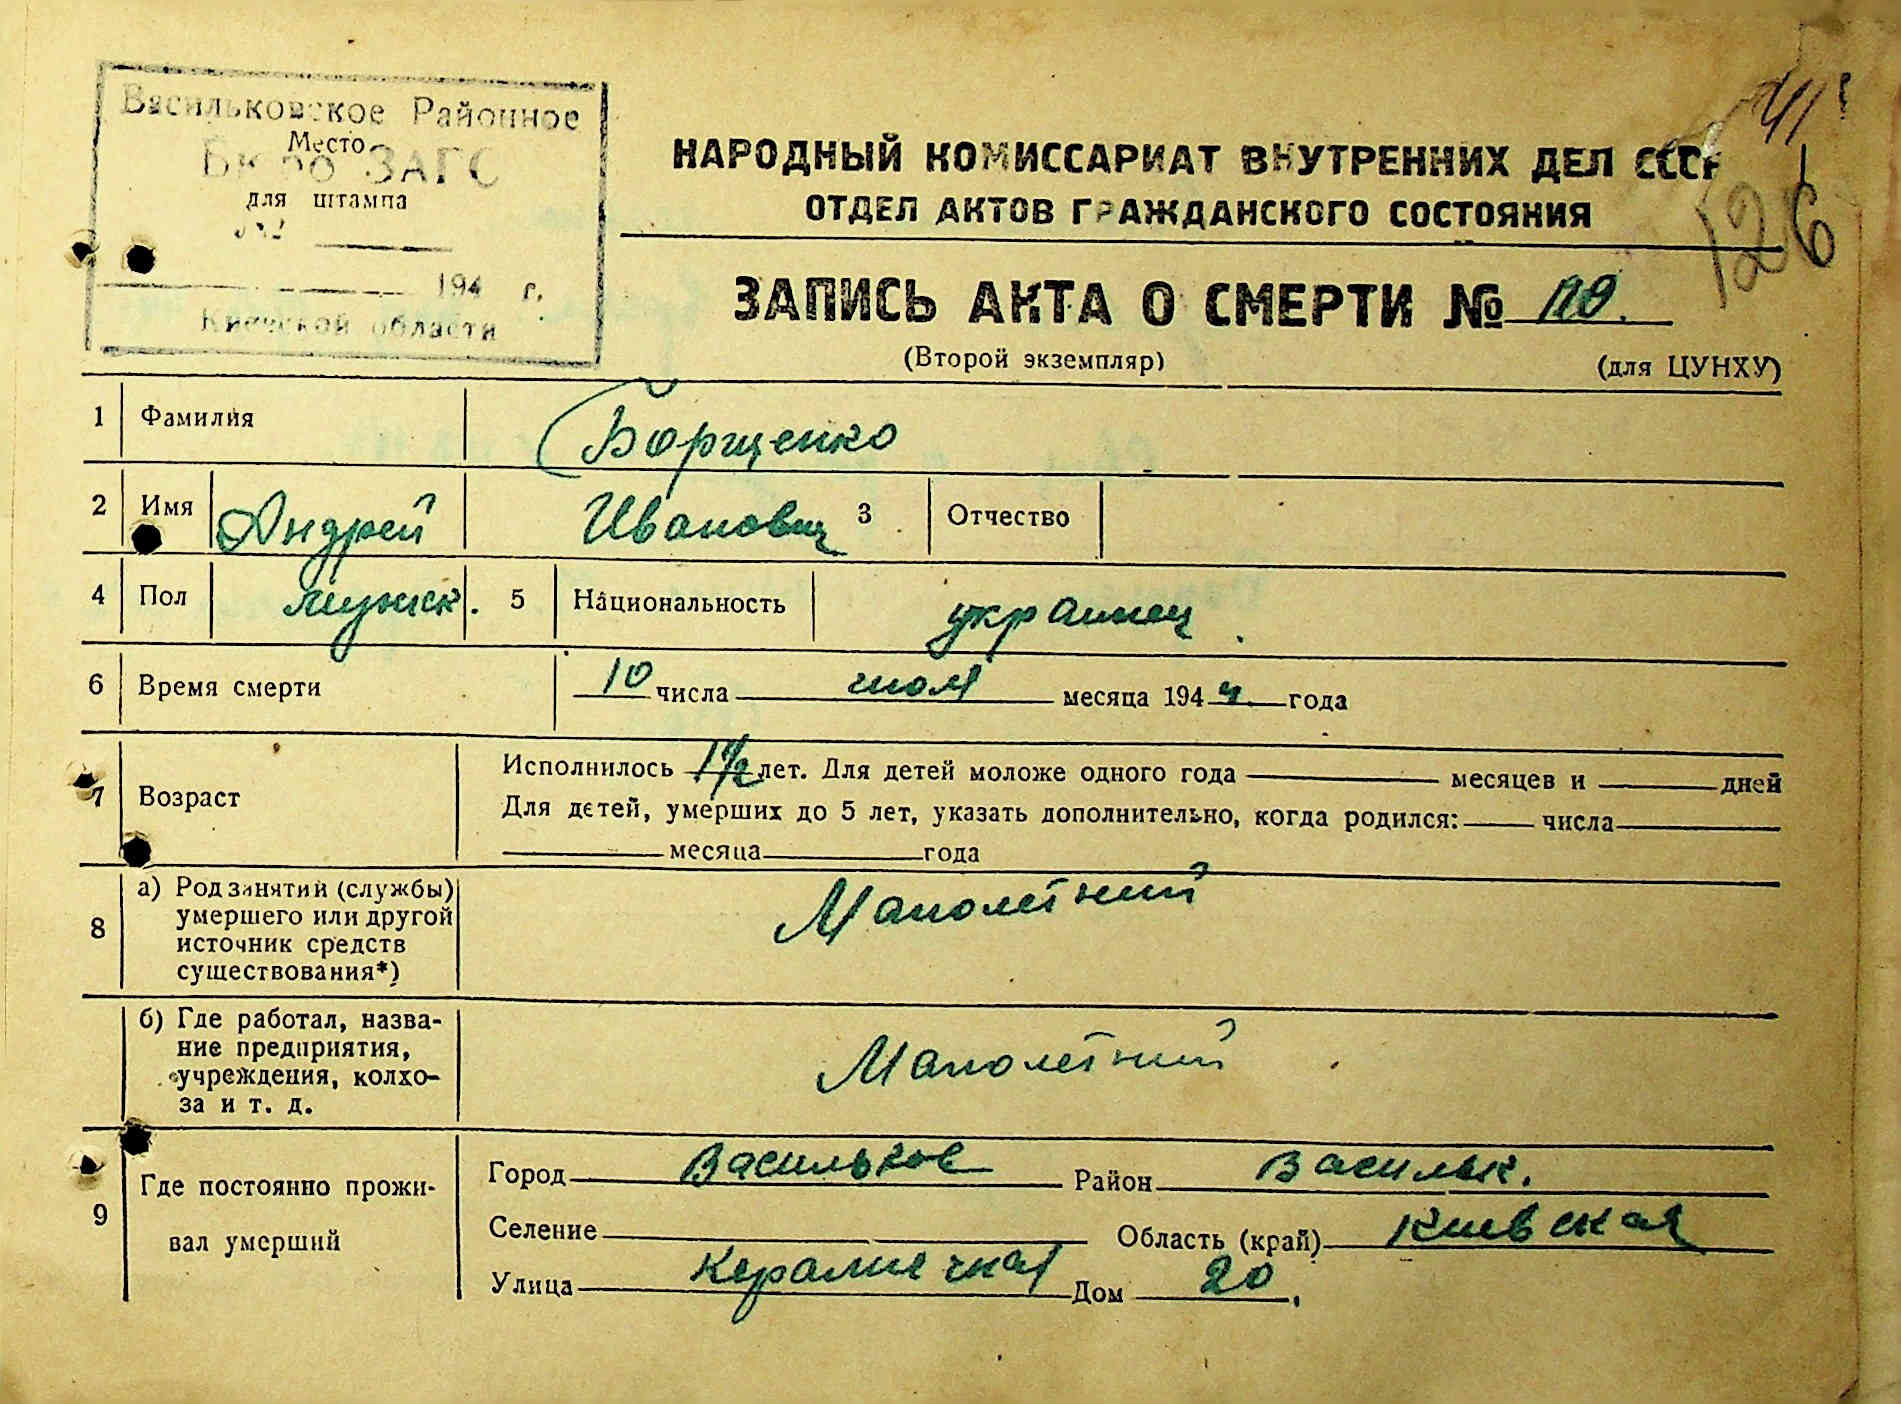 Васильковское Районное
Место
Бюро ЗАГС
для штампа
№
194 г.
Киевской области
41
126
НАРОДНЫЙ КОМИССАРИАТ ВНУТРЕННИХ ДЕЛ СССР
ОТДЕЛ АКТОВ ГРАЖДАНСКОГО СОСТОЯНИЯ
ЗАПИСЬ АКТА О СМЕРТИ №
(Второй экземпляр) (для ЦУНХУ)
1 Фамилия Борщенко
2 Имя Андрей Иванович 3 Отчество
4 Пол мужск. 5 Национальность украинец
6 Время смерти 10 числа месяца 1944 года
7 Возраст Исполнилось лет. Для детей моложе одного года месяцев и дней
Для детей, умерших до 5 лет, указать дополнительно, когда родился: числа
месяца года
8 а) Род занятий (службы)
умершего или другой
источник средств
существования*)
Малолетний
б) Где работал, назва-
ние предприятия,
учреждения, колхо-
за и т. д.
Малолетний
9 Где постоянно прожи-
вал умерший
Город Васильков Район Васильк.
Селение Область (край) Киевская
Улица Керамичная Дом 20.